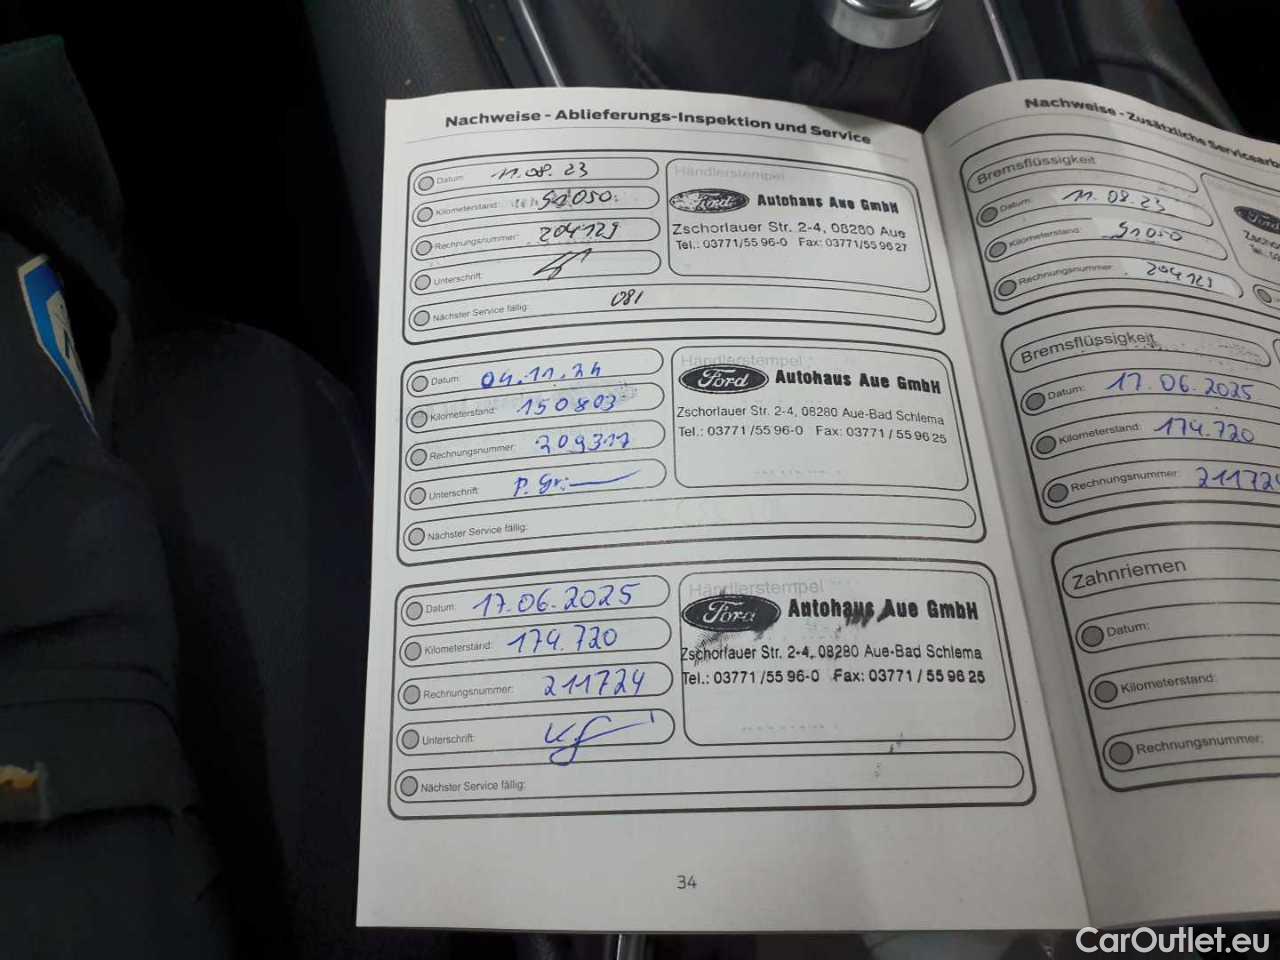 Nachweise - Ablieferungs-Inspektion und Service
Datum: 11.08.23
Kilometerstand: 91050
Rechnungsnummer: 204129
Unterschrift:
Nächster Service fällig: 081
Händlerstempel
Ford Autohaus Aue GmbH
Zschorlauer Str. 2-4, 08280 Aue
Tel.: 03771/55 96-0 Fax: 03771/55 96 27
Datum: 04.11.24
Kilometerstand: 150803
Rechnungsnummer: 209317
Unterschrift: P. Gr.
Nächster Service fällig:
Händlerstempel
Ford Autohaus Aue GmbH
Zschorlauer Str. 2-4, 08280 Aue-Bad Schlema
Tel.: 03771/55 96-0 Fax: 03771/55 96 25
Datum: 17.06.2025
Kilometerstand: 174.720
Rechnungsnummer: 211724
Unterschrift:
Nächster Service fällig:
Händlerstempel
Ford Autohaus Aue GmbH
Zschorlauer Str. 2-4, 08280 Aue-Bad Schlema
Tel.: 03771/55 96-0 Fax: 03771/55 96 25
34
Nachweise - Zusätzliche Servicearb
Bremsflüssigkeit
Datum: 11.08.23
Kilometerstand: 91050
Rechnungsnummer: 204129
Ford
Bremsflüssigkeit
Datum: 17.06.2025
Kilometerstand: 174.720
Rechnungsnummer: 211724
Zahnriemen
Datum:
Kilometerstand:
Rechnungsnummer:
CarOutlet.eu